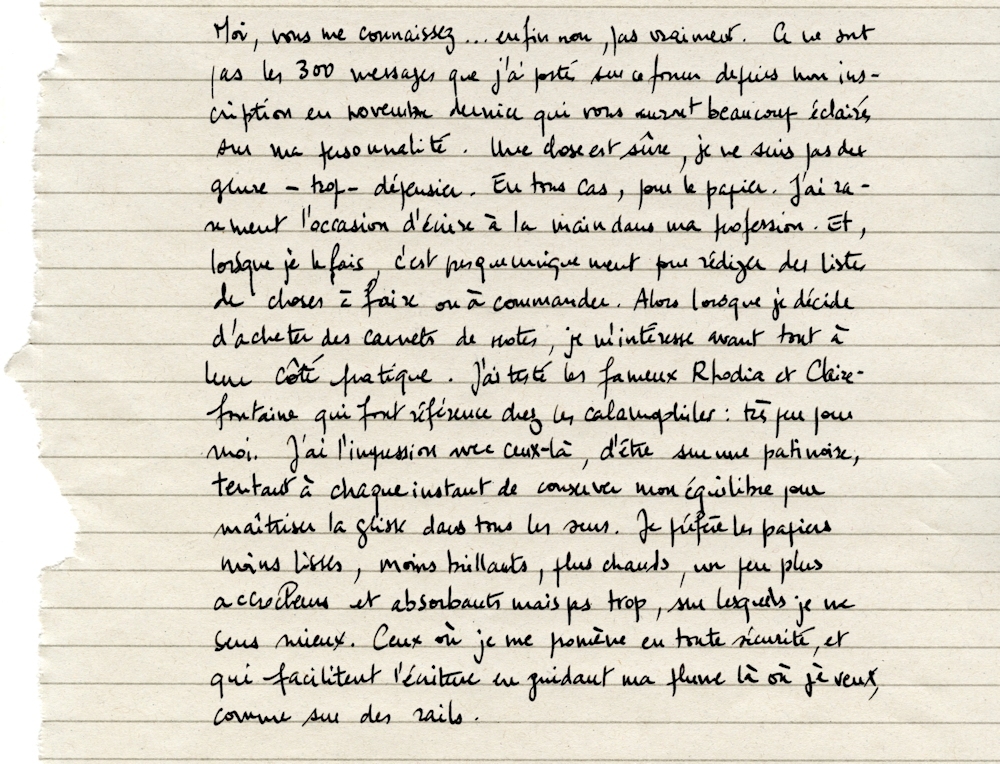 Moi, vous me connaissez... enfin non, pas vraiment. Ce ne sont
pas les 300 messages que j'ai posté sur ce forum depuis mon ins-
cription en novembre dernier qui vous auront beaucoup éclairés
sur ma personnalité. Une chose est sûre, je ne suis pas du
genre - trop - dépensier. En tous cas, pour le papier. J'ai ra-
rement l'occasion d'écrire à la main dans ma profession. Et,
lorsque je le fais, c'est presque uniquement pour rédiger des listes
de choses à faire ou à commander. Alors lorsque je décide
d'acheter des carnets de notes, je m'intéresse avant tout à
leur côté pratique. J'ai testé les fameux Rhodia et Claire-
fontaine qui font référence chez les calamophiles : très peu pour
moi. J'ai l'impression avec ceux-là, d'être sur une patinoire,
tentant à chaque instant de conserver mon équilibre pour
maîtriser la glisse dans tous les sens. Je préfère les papiers
moins lisses, moins brillants, plus chauds, un peu plus
accrocheurs et absorbants mais pas trop, sur lesquels je me
sens mieux. Ceux où je me promène en toute sécurité, et
qui facilitent l'écriture en guidant ma plume là où je veux,
comme sur des rails.